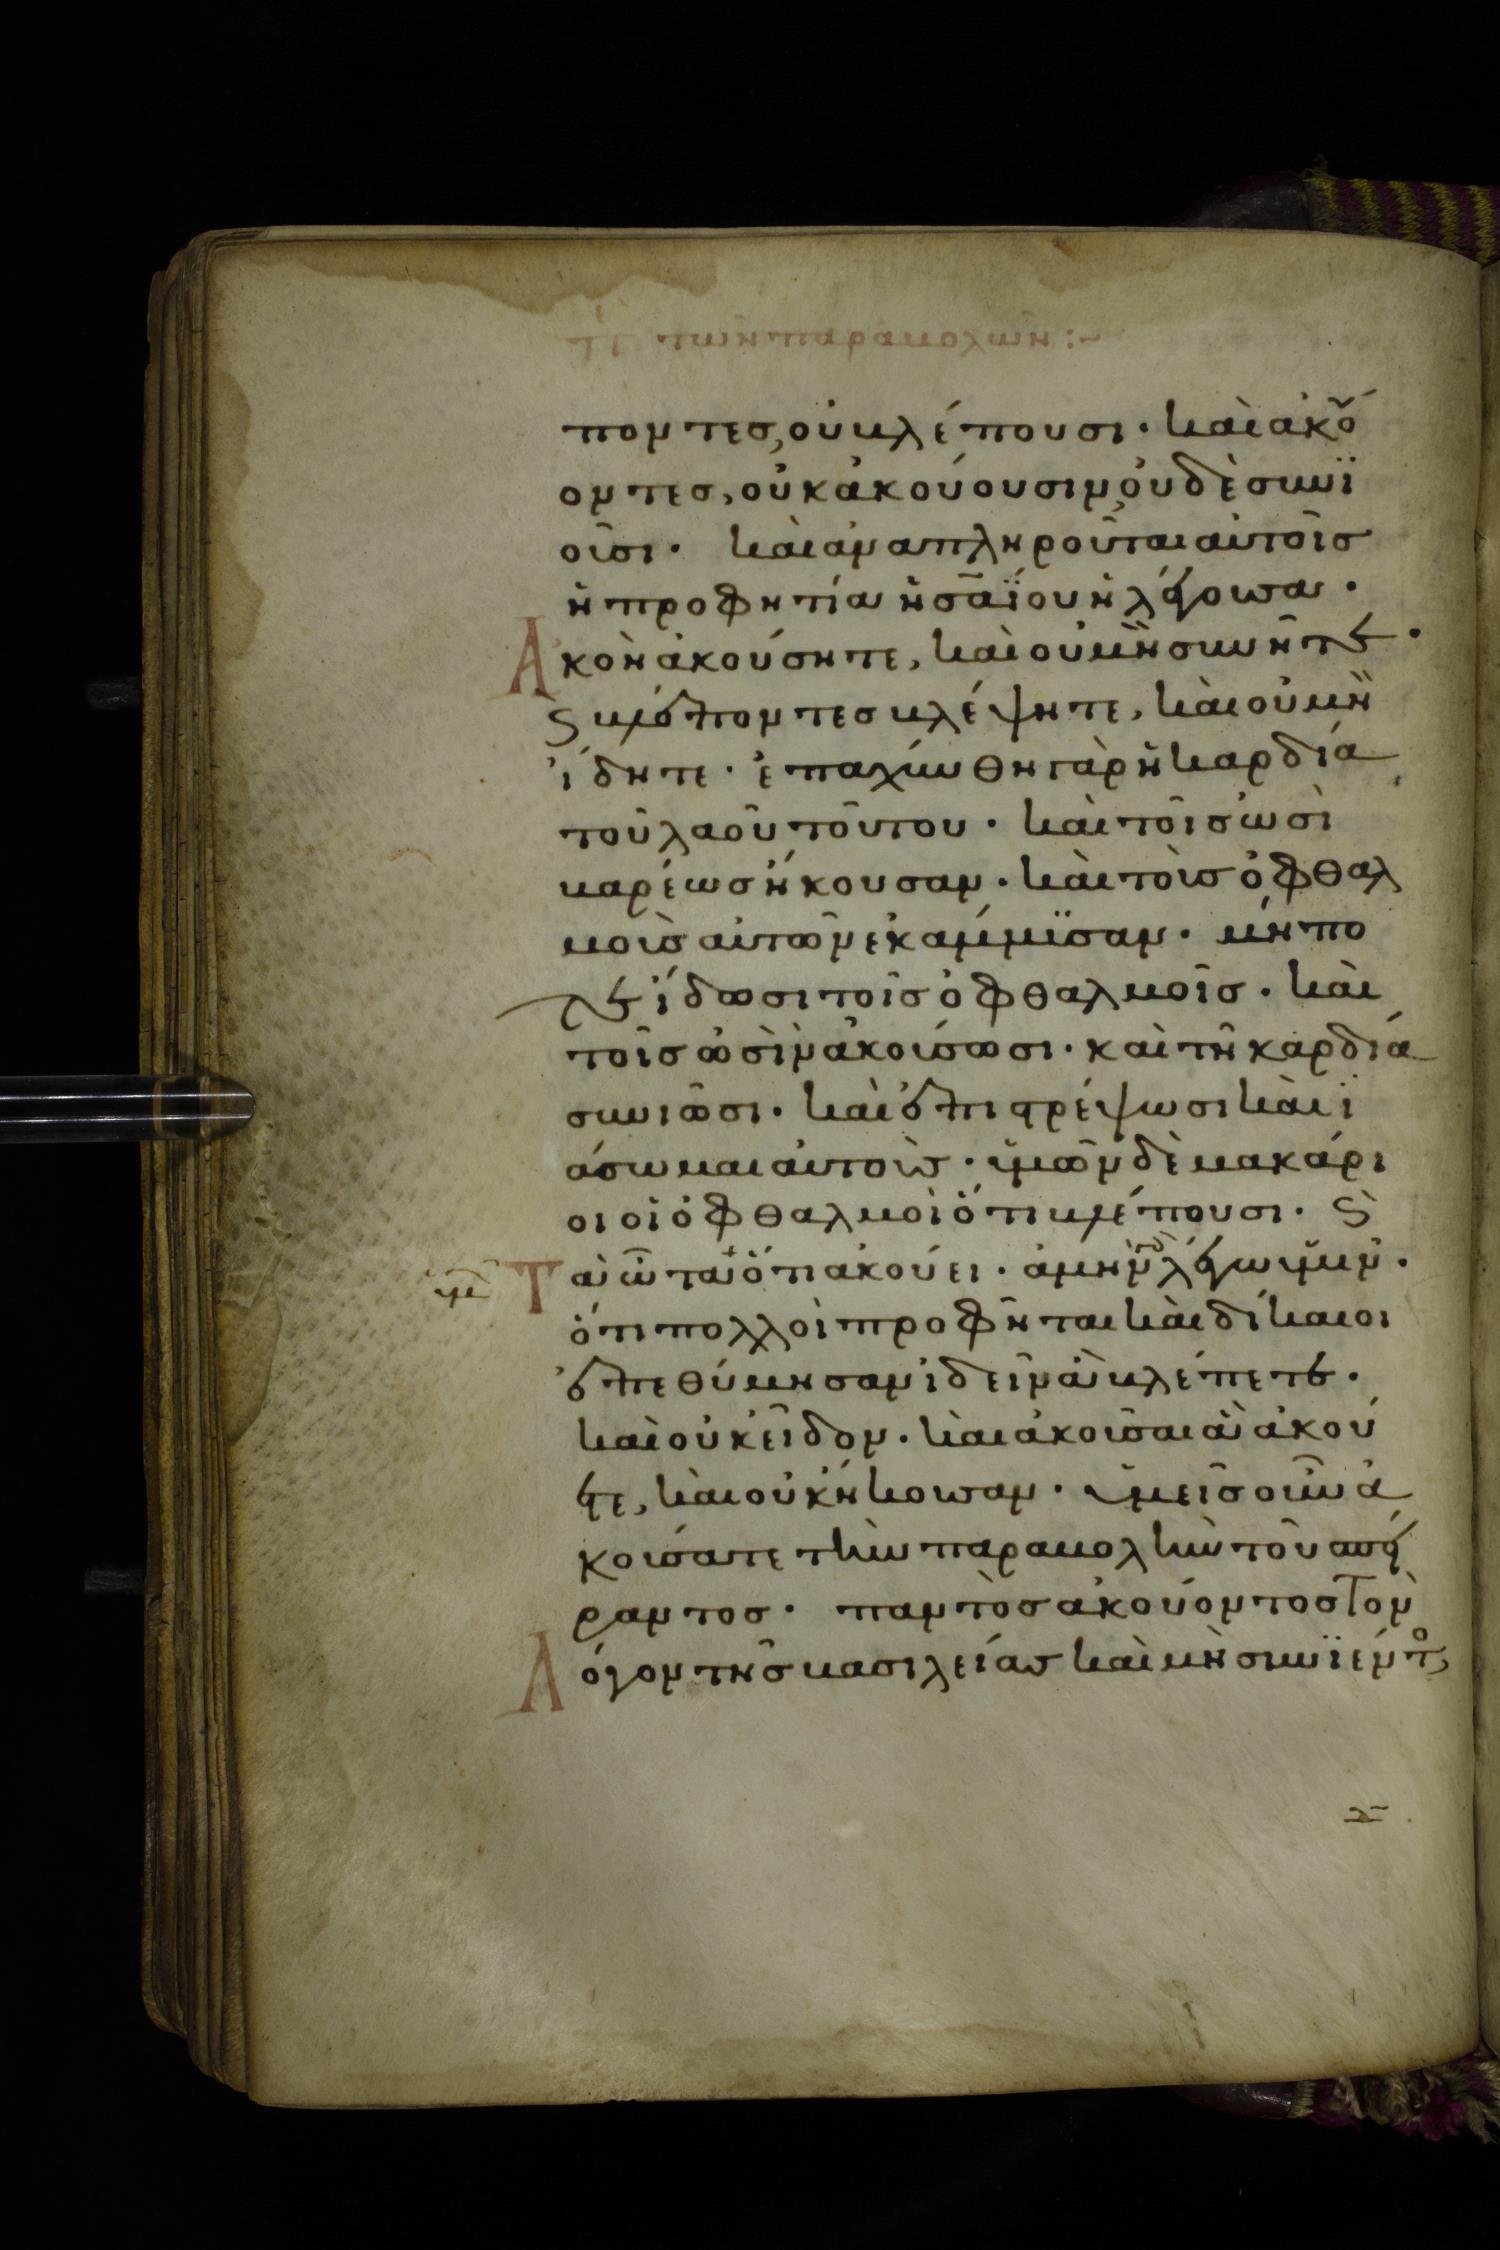 περὶ τῶν παραβολῶν :~
ποντες, οὐ βλέπουσι· καὶ ἀκού
οντες, οὐκ ἀκούουσιν οὐδὲ συνϊ
οῦσι· καὶ ἀναπληροῦται αὐτοῖς
ἡ προφητία ἡσαΐου ἡ λέγουσα·
Ἀκοῆ ἀκούσητε, καὶ οὐ μὴ συνῆτε·
ϛ βλέποντες βλέψητε, καὶ οὐ μὴ
ἴδητε· ἐπαχύνθη γὰρ ἡ καρδία
τοῦ λαοῦ τούτου· καὶ τοῖς ὠσὶ
βαρέως ἤκουσαν· καὶ τοὺς ὀφθαλ
μοὺς αὐτῶν ἐκάμμϋσαν· μήπο
τε ἴδωσι τοῖς ὀφθαλμοῖς· καὶ
τοῖς ὠσὶν ἀκούσωσι· καὶ τῆ καρδία
συνιῶσι· καὶ ἐπιστρέψωσι καὶ ϊ
άσωμαι αὐτούς· ὑμῶν δὲ μακάρι
οι οἱ ὀφθαλμοὶ ὅτι βλέπουσι· ϛ
Τὰ ὦτα ὅτι ἀκούει· ἀμὴν γὰρ λέγω ὑμῖν·
ὑμῶν
ὅτι πολλοὶ προφῆται καὶ δίκαιοι
ἐπεθύμησαν ἰδεῖν ἃ βλέπετε·
καὶ οὐκ εἶδον· καὶ ἀκοῦσαι ἃ ἀκού
ετε, καὶ οὐκ ἤκουσαν· ὑμεῖς οὖν ἀ
κούσατε τὴν παραβολὴν τοῦ σπεί
ραντος· παντὸς ἀκούοντος τὸν
Λόγον τῆς βασιλείας καὶ μὴ συνϊέντος